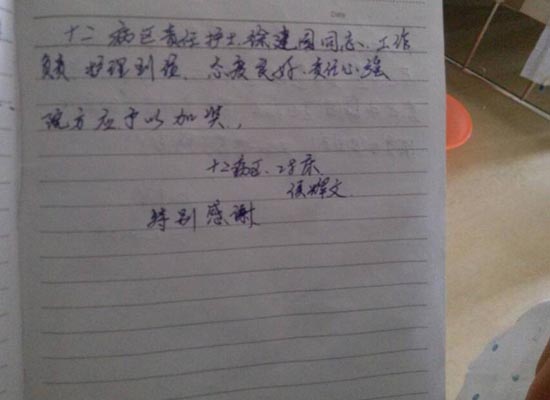 Date
十二病区责任护士.徐建园同志.工作
负责 护理到位、态度良好.责任心强
院方应予以加奖,
十二病区.25床
侯辉文
特别感谢